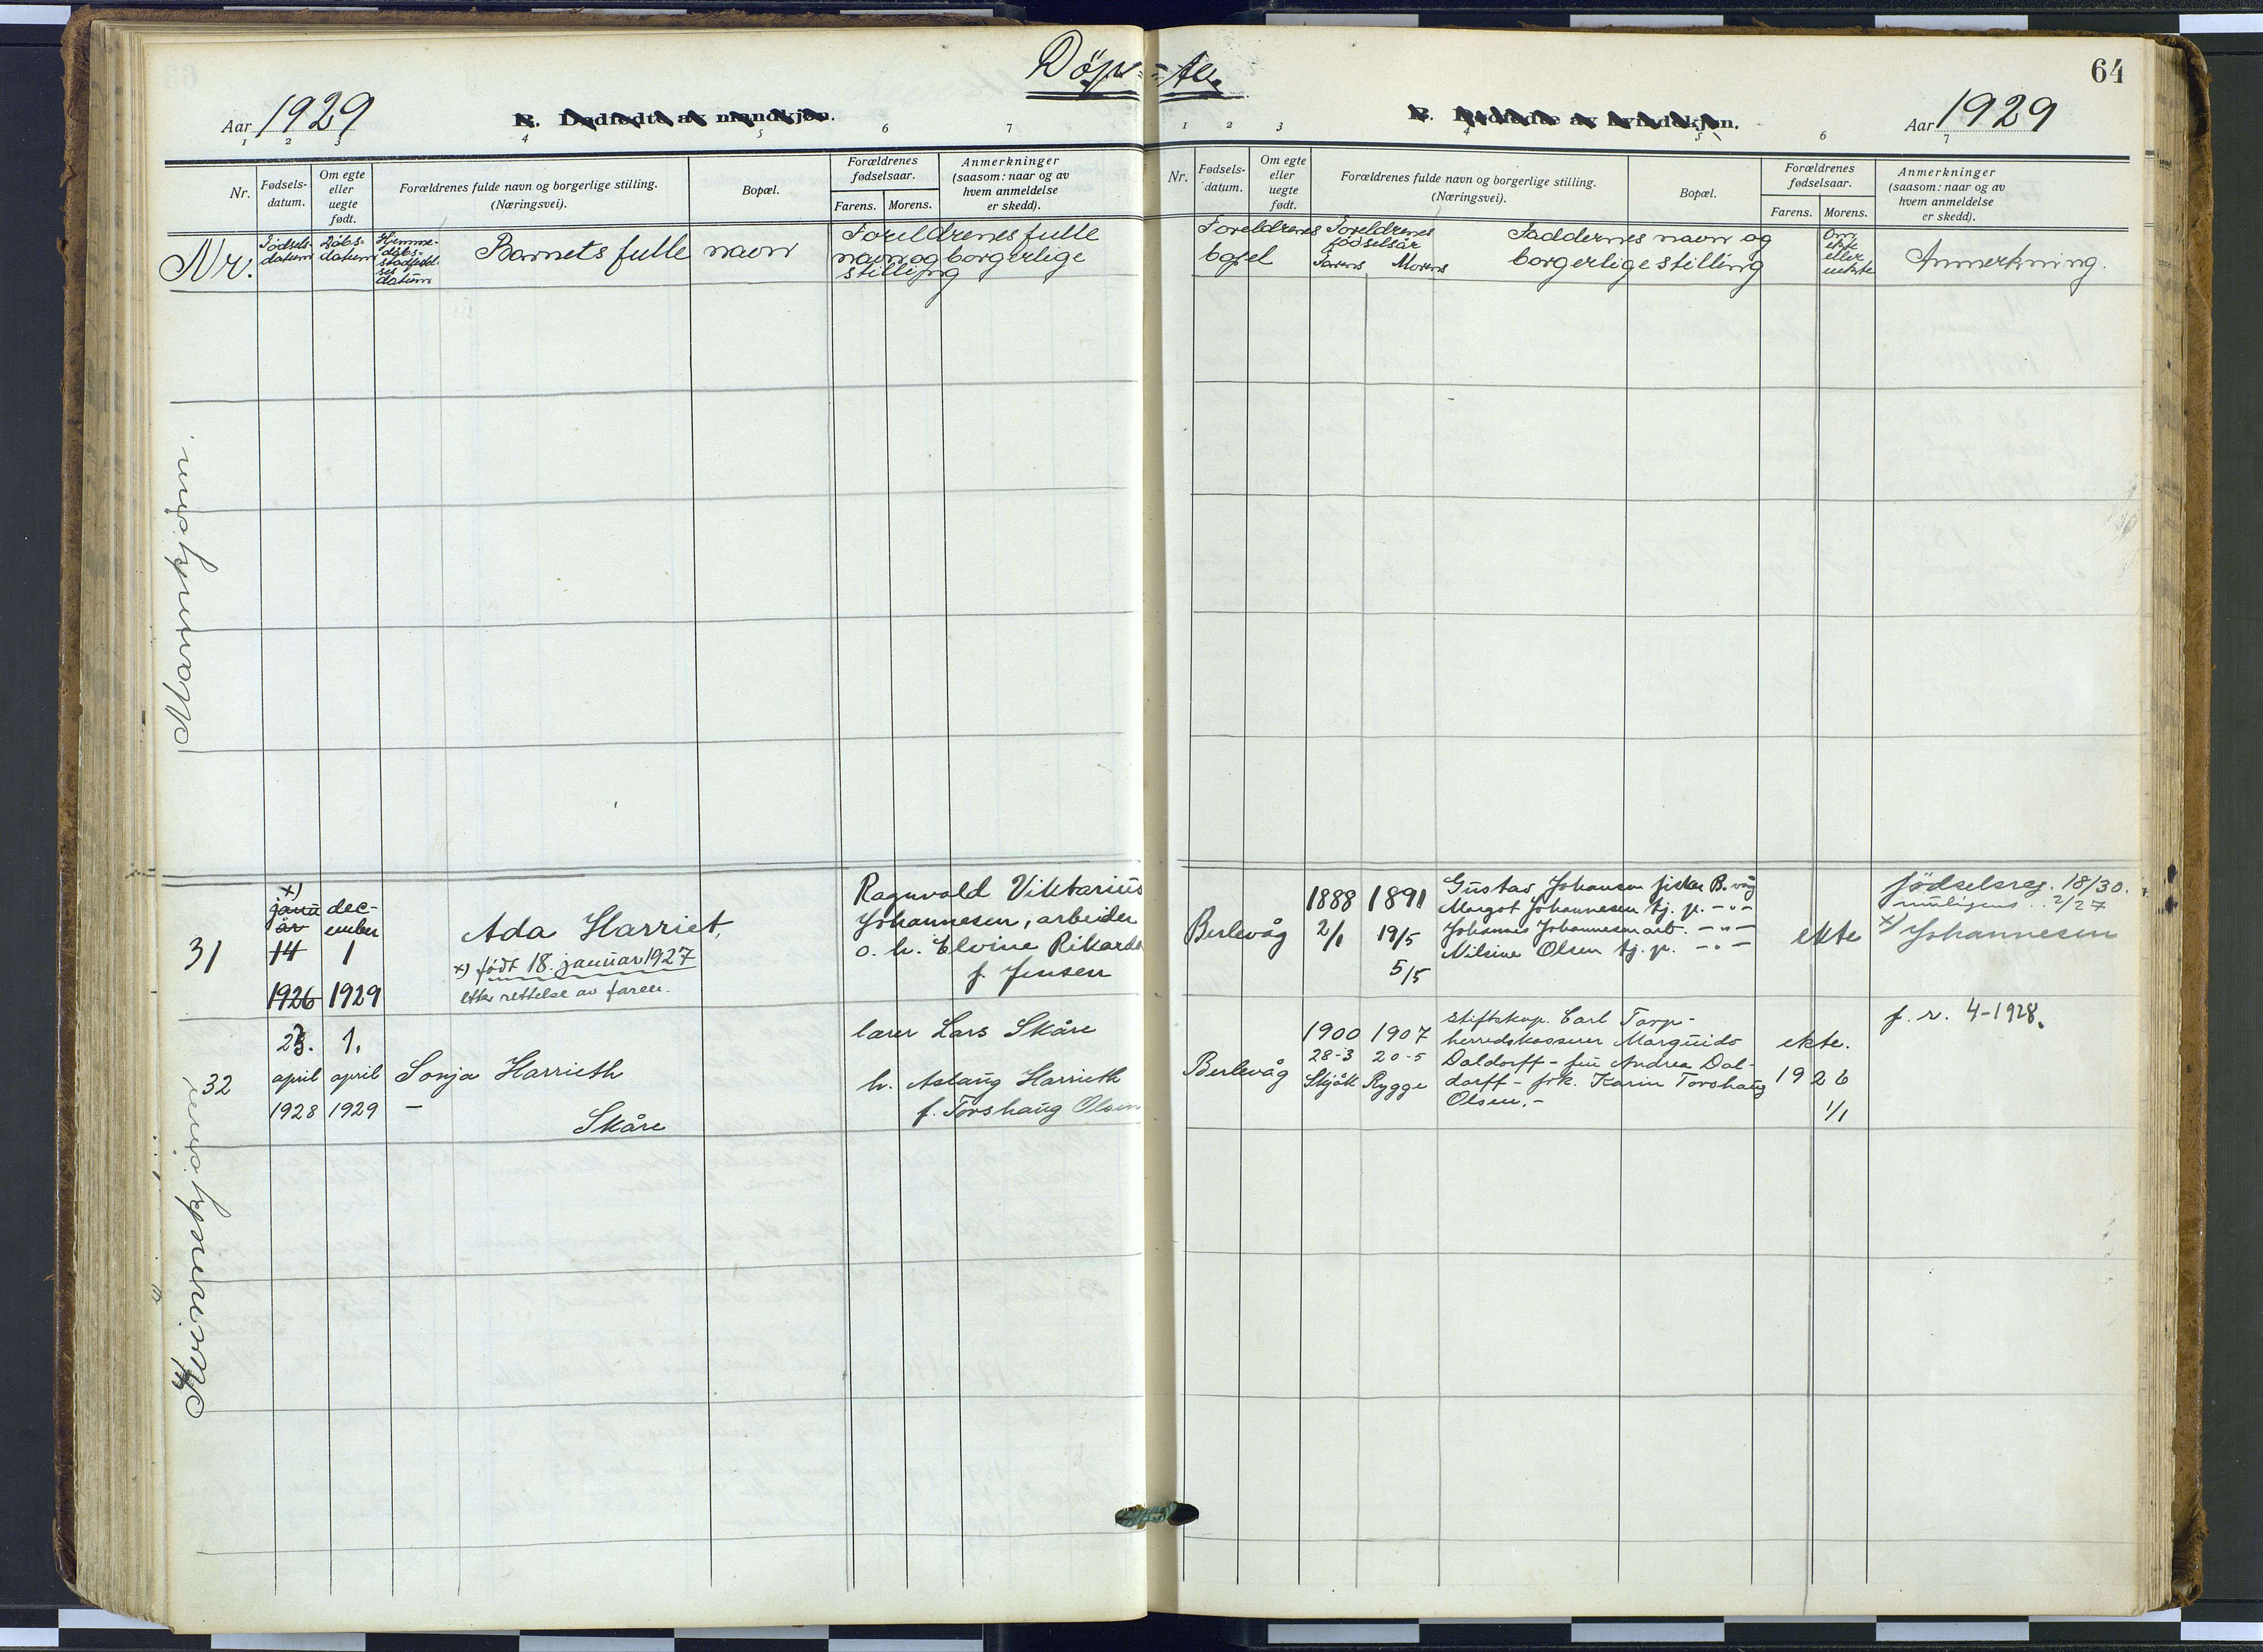 Døp-
te.
64
Aar 1929
B. Dødfødte av mandkjøn.
B. Dødfødte av kvindekjøn.
Aar 1929
1 2 3 4 5 6 7
1 2 3 4 5 6 7
Nr.
Fødsels-
datum.
Om egte
eller
uegte
født.
Forældrenes fulde navn og borgerlige stilling.
(Næringsvei).
Bopæl.
Forældrenes
fødselsaar.
Farens. Morens.
Anmerkninger
(saasom: naar og av
hvem anmeldelse
er skedd).
Nr.
Fødsels-
datum.
Om egte
eller
uegte
født.
Forældrenes fulde navn og borgerlige stilling.
(Næringsvei).
Bopæl.
Forældrenes
fødselsaar.
Farens. Morens.
Anmerkninger
(saasom: naar og av
hvem anmeldelse
er skedd).
Nr.
Fødsels-
datum
Dåbs-
datum
Hjemme-
dåbs-
stadfæstel-
ses
datum
Barnets fulle navn
Foreldrenes fulle
navn og borgerlige
stilling
Foreldrenes
bopel
Foreldrenes
fødselsår
Farens Morens
Faddernes navn og
borgerlige stilling
Om
ekte
eller
uekte
Anmerkning.
Mannkjønn.
31
x)
janu
ar
14
1926
dec-
ember
1
1929
Ada Harriet,
x) født 18. januar 1927
etter rettelse av faren.
Ragnvald Viktarius
Johannesen, arbeider
o. h. Elvine Rikarda
f. Jensen
Berlevåg
1888
2/1
1891
19/5
5/5
Gustav Johansen fisker B.våg
Margot Johannesen tj. p. -"-
Johannes Johannesen arb. -"-
Nilsine Olsen tj. p. -"-
ekte
fødselsreg. 18/30.
2/27
x) Johannesen
Kvinnekjønn
32
23.
april
1928
1.
april
1929
Sonja Harrieth
-
Skåre
lærer Lars Skåre
h. Aslaug Harrieth
f. Torshaug Olsen
Berlevåg
1900
28-3
Skjåk
1907
20-5
Rygge
stiftskap. Carl Torp-
herredskasserer Marguido
Daldorff - fru Andrea Dal-
dorff - frk. Karin Torshaug
Olsen.-
ekte.
1926
1/1
f. r. 4-1928.